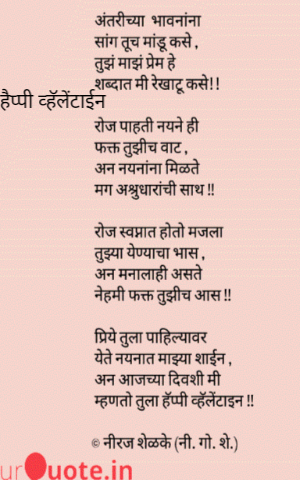 अंतरीच्या भावनांना
सांग तूच मांडू कसे ,
तुझं माझं प्रेम हे
शब्दात मी रेखाटू कसे!!
हैप्पी व्हॅलेंटाईन
रोज पाहती नयने ही
फक्त तुझीच वाट ,
अन नयनांना मिळते
मग अश्रुधारांची साथ !!
रोज स्वप्नात होतो मजला
तुझ्या येण्याचा भास ,
अन मनालाही असते
नेहमी फक्त तुझीच आस !!
प्रिये तुला पाहिल्यावर
येते नयनात माझ्या शाईन ,
अन आजच्या दिवशी मी
म्हणतो तुला हॅप्पी व्हॅलेंटाइन !!
© नीरज शेळके (नी. गो. शे.)
urQuote.in